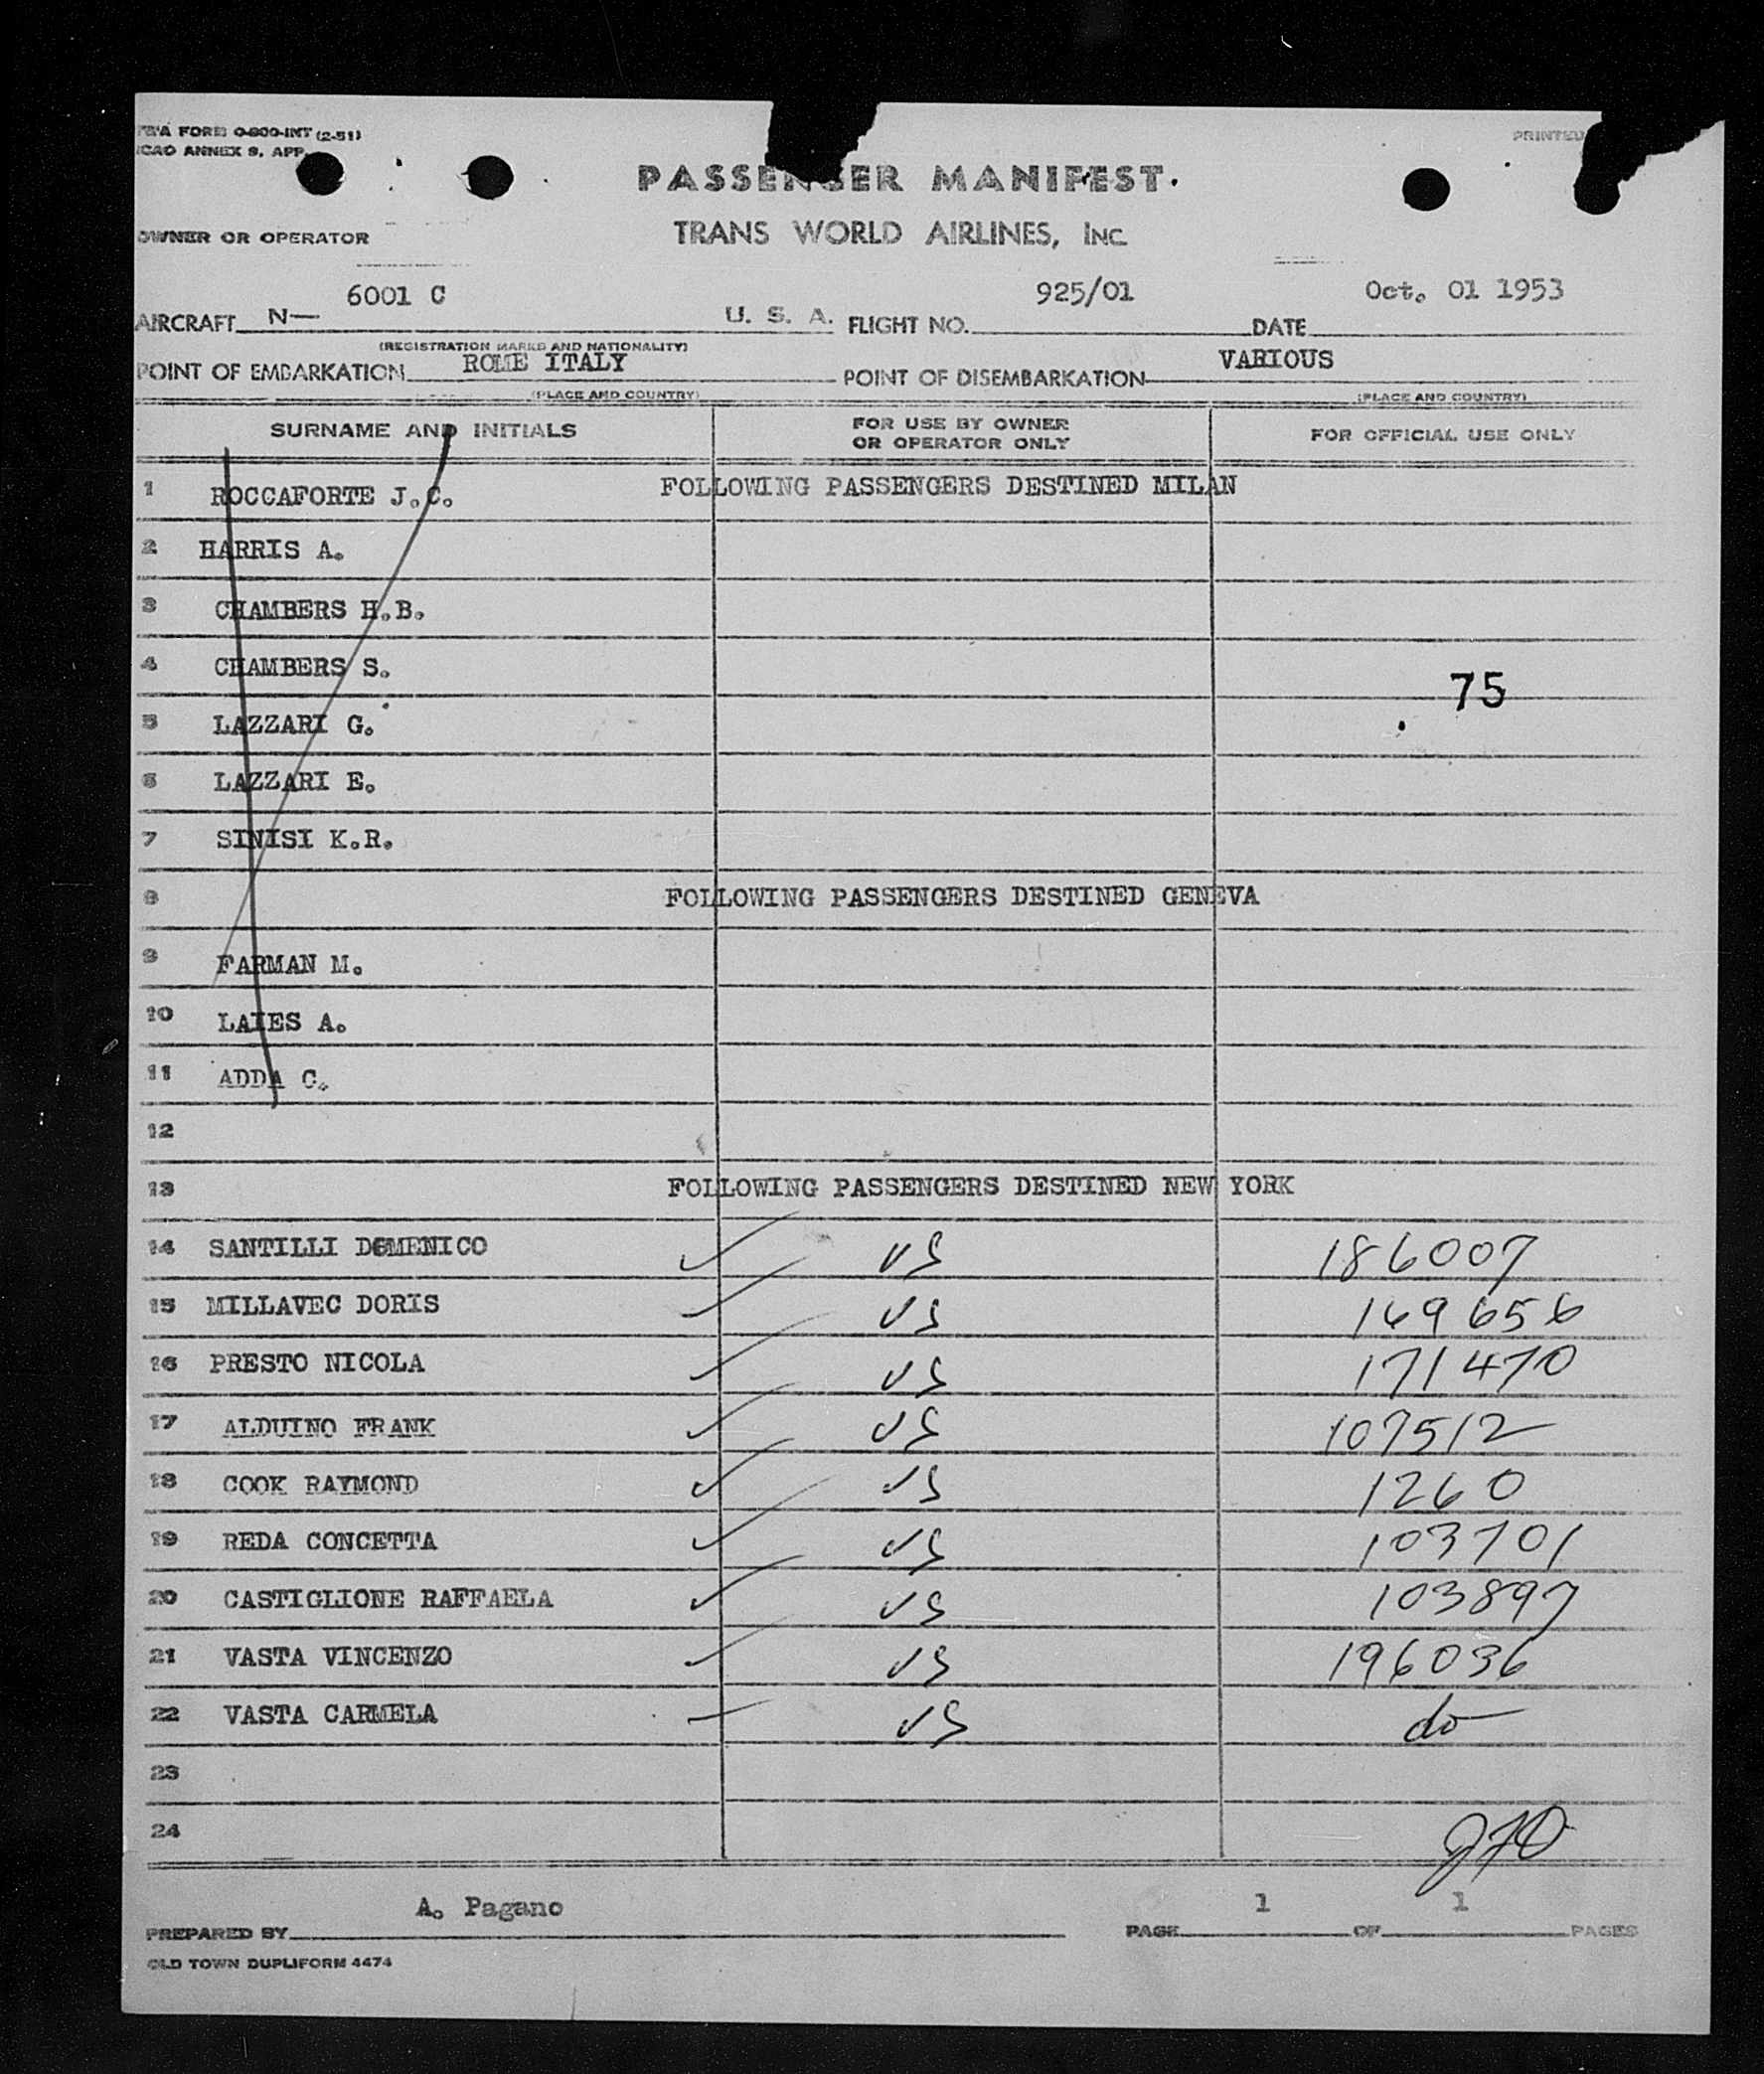 TWA FORM O-800-INT (2-51)
ICAO ANNEX 9, APP.
PRINTED
PASSENGER MANIFEST
OWNER OR OPERATOR
TRANS WORLD AIRLINES, INC.
AIRCRAFT N— 6001 C U. S. A. FLIGHT NO. 925/01 DATE Oct. 01 1953
(REGISTRATION MARKS AND NATIONALITY)
POINT OF EMBARKATION ROME ITALY POINT OF DISEMBARKATION VARIOUS
(PLACE AND COUNTRY) (PLACE AND COUNTRY)
SURNAME AND INITIALS FOR USE BY OWNER OR OPERATOR ONLY FOR OFFICIAL USE ONLY
1 ROCCAFORTE J.C. FOLLOWING PASSENGERS DESTINED MILAN
2 HARRIS A.
3 CHAMBERS H.B.
4 CHAMBERS S. 75
5 LAZZARI G.
6 LAZZARI E.
7 SINISI K.R.
8 FOLLOWING PASSENGERS DESTINED GENEVA
9 FARMAN M.
10 LAIES A.
11 ADDA C.
12
13 FOLLOWING PASSENGERS DESTINED NEW YORK
14 SANTILLI DOMENICO ✓ US 186007
15 MILLAVEC DORIS ✓ US 169656
16 PRESTO NICOLA ✓ US 171470
17 ALDUINO FRANK ✓ US 107512
18 COOK RAYMOND ✓ US 1260
19 REDA CONCETTA ✓ US 103701
20 CASTIGLIONE RAFFAELA ✓ US 103897
21 VASTA VINCENZO ✓ US 196036
22 VASTA CARMELA — US do
23
24
A. Pagano 1 1
PREPARED BY PAGE OF PAGES
OLD TOWN DUPLIFORM 4474